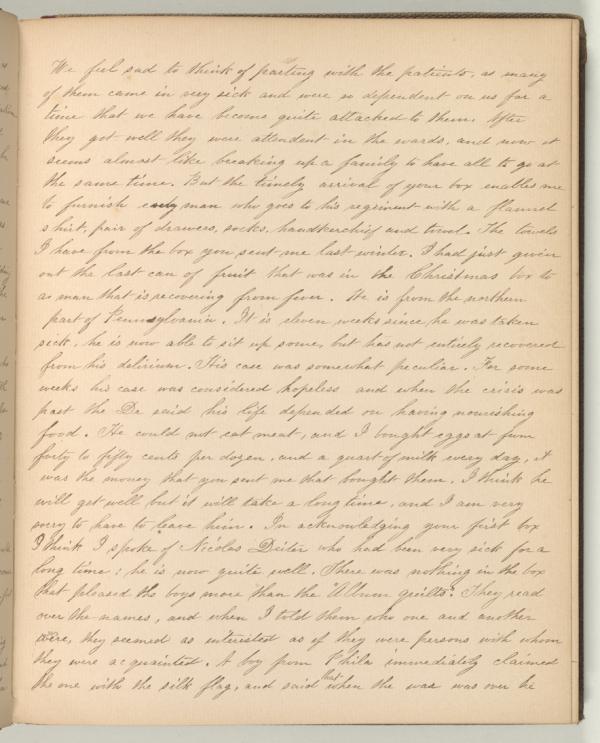 We feel sad to think of parting with the patients, as many
of them came in very sick and were so dependent on us for a
time that we have become quite attached to them. After
they got well they were attendent in the wards, and now it
seems almost like breaking up a family to have all to go at
the same time. But the timely arrival of your box enables me
to furnish every man who goes to his regiment with a flannel
shirt, pair of drawers, socks, handkerchief and towel. The towels
I have from the box you sent me last winter. I had just given
out the last can of fruit that was in the Christmas box to
a man that is recovering from fever. He is from the northern
part of Pennsylvania. It is eleven weeks since he was taken
sick, he is now able to sit up some, but has not entirely recovered
from his delirium. His case was somewhat peculiar. For some
weeks his case was considered hopeless and when the crisis was
past the Dr said his life depended on having nourishing
food. He could not eat meat, and I bought eggs at from
forty to fifty cents per dozen, and a quart of milk every day, it
was the money that you sent me that bought them. I think he
will get well but it will take a long time, and I am very
sorry to have to leave him. In acknowledging your first box
I think I spoke of Nicolas Dieter who had been very sick for a
long time; he is now quite well. There was nothing in the box
that pleased the boys more than the Album quilts. They read
over the names, and when I told them who one and another
were, they seemed as interisted as if they were persons with whom
they were acquainted. A boy from Phila immediately claimed
the one with the silk flag, and said that when the war was over he